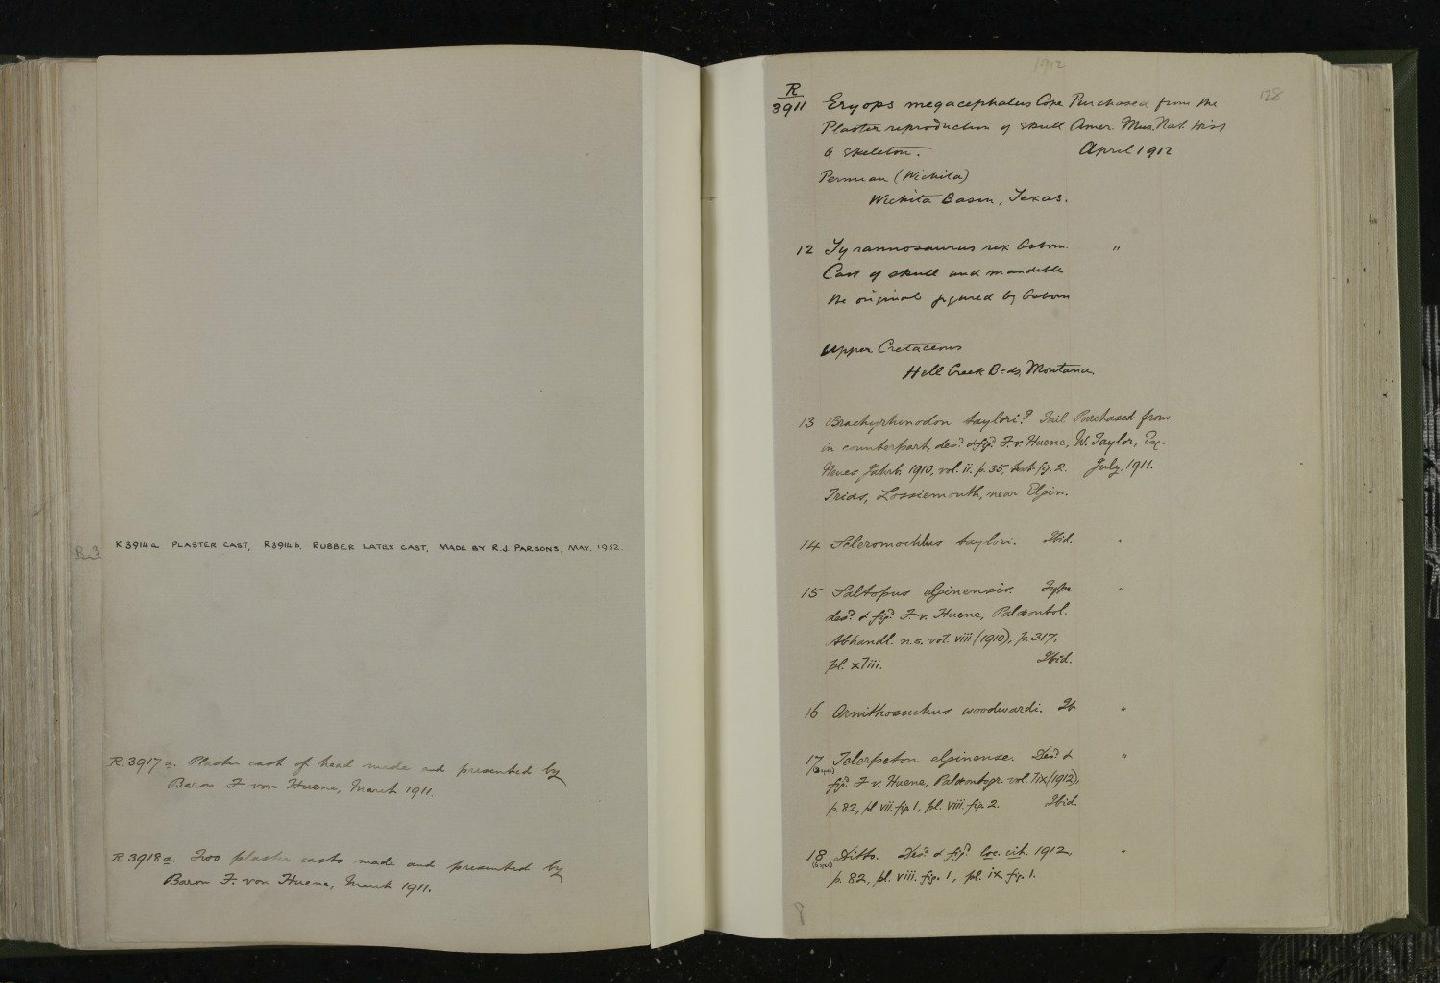 K3914a PLASTER CAST, R3914b, RUBBER LATEX CAST, MADE BY R.J. PARSONS, MAY. 1952.
R.3917a. Plaster cast of head made and presented by
Baron F von Huene, March 1911.
R.3918a. Two plaster casts made and presented by
Baron F. von Huene, March 1911.
1912
128
R
3911 Eryops megacephalus Cope Purchased from the
Plaster reproduction of skull Amer. Mus. Nat. Hist
& skeleton. April 1912
Permian (Wichita)
Wichita Basin, Texas.
12 Tyrannosaurus rex Osborn. "
Cast of skull and mandible
the original figured by Osborn
Upper Cretaceous
Hell Creek Beds, Montana.
13 Brachyrhinodon taylori? Tail Purchased from
in counterpart, desd. & figd. F. v. Huene, W. Taylor, Esq.
Neues Jahrb. 1910, vol. ii. p. 35, text-fig. 2. July, 1911.
Trias, Lossiemouth, near Elgin.
14 Scleromochlus taylori. Ibid. "
15 Saltopus elginensis. Type "
desd. & figd. F. v. Huene, Palæontol.
Abhandl. n.s. vol. viii (1910), p. 317,
pl. xliii. Ibid.
16 Ornithosuchus woodwardi. Ib "
17 Telerpeton elginense. Desd. & "
figd. F v. Huene, Palæontogr. vol. lix (1912),
p. 82, pl vii. fig. 1, pl. viii. fig. 2. Ibid.
18 Ditto. Desd. & figd. loc. cit. 1912, "
p. 82, pl. viii. fig. 1, pl. ix fig. 1.